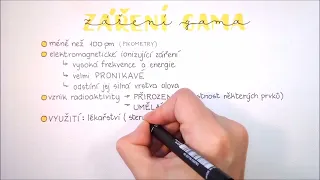 záření gama
ZÁŘENÍ GAMA
méně než 100 pm (PIKOMETRY)
elektromagnetické ionizující záření
↳ vysoká frekvence a energie
↳ velmi PRONIKAVÉ
↳ odstíní jej silná vrstva olova
vznik radioaktivity → PŘIROZEN stnost některých prvků)
→ UMĚLÁ
VYUŽITÍ: lékařství (ster